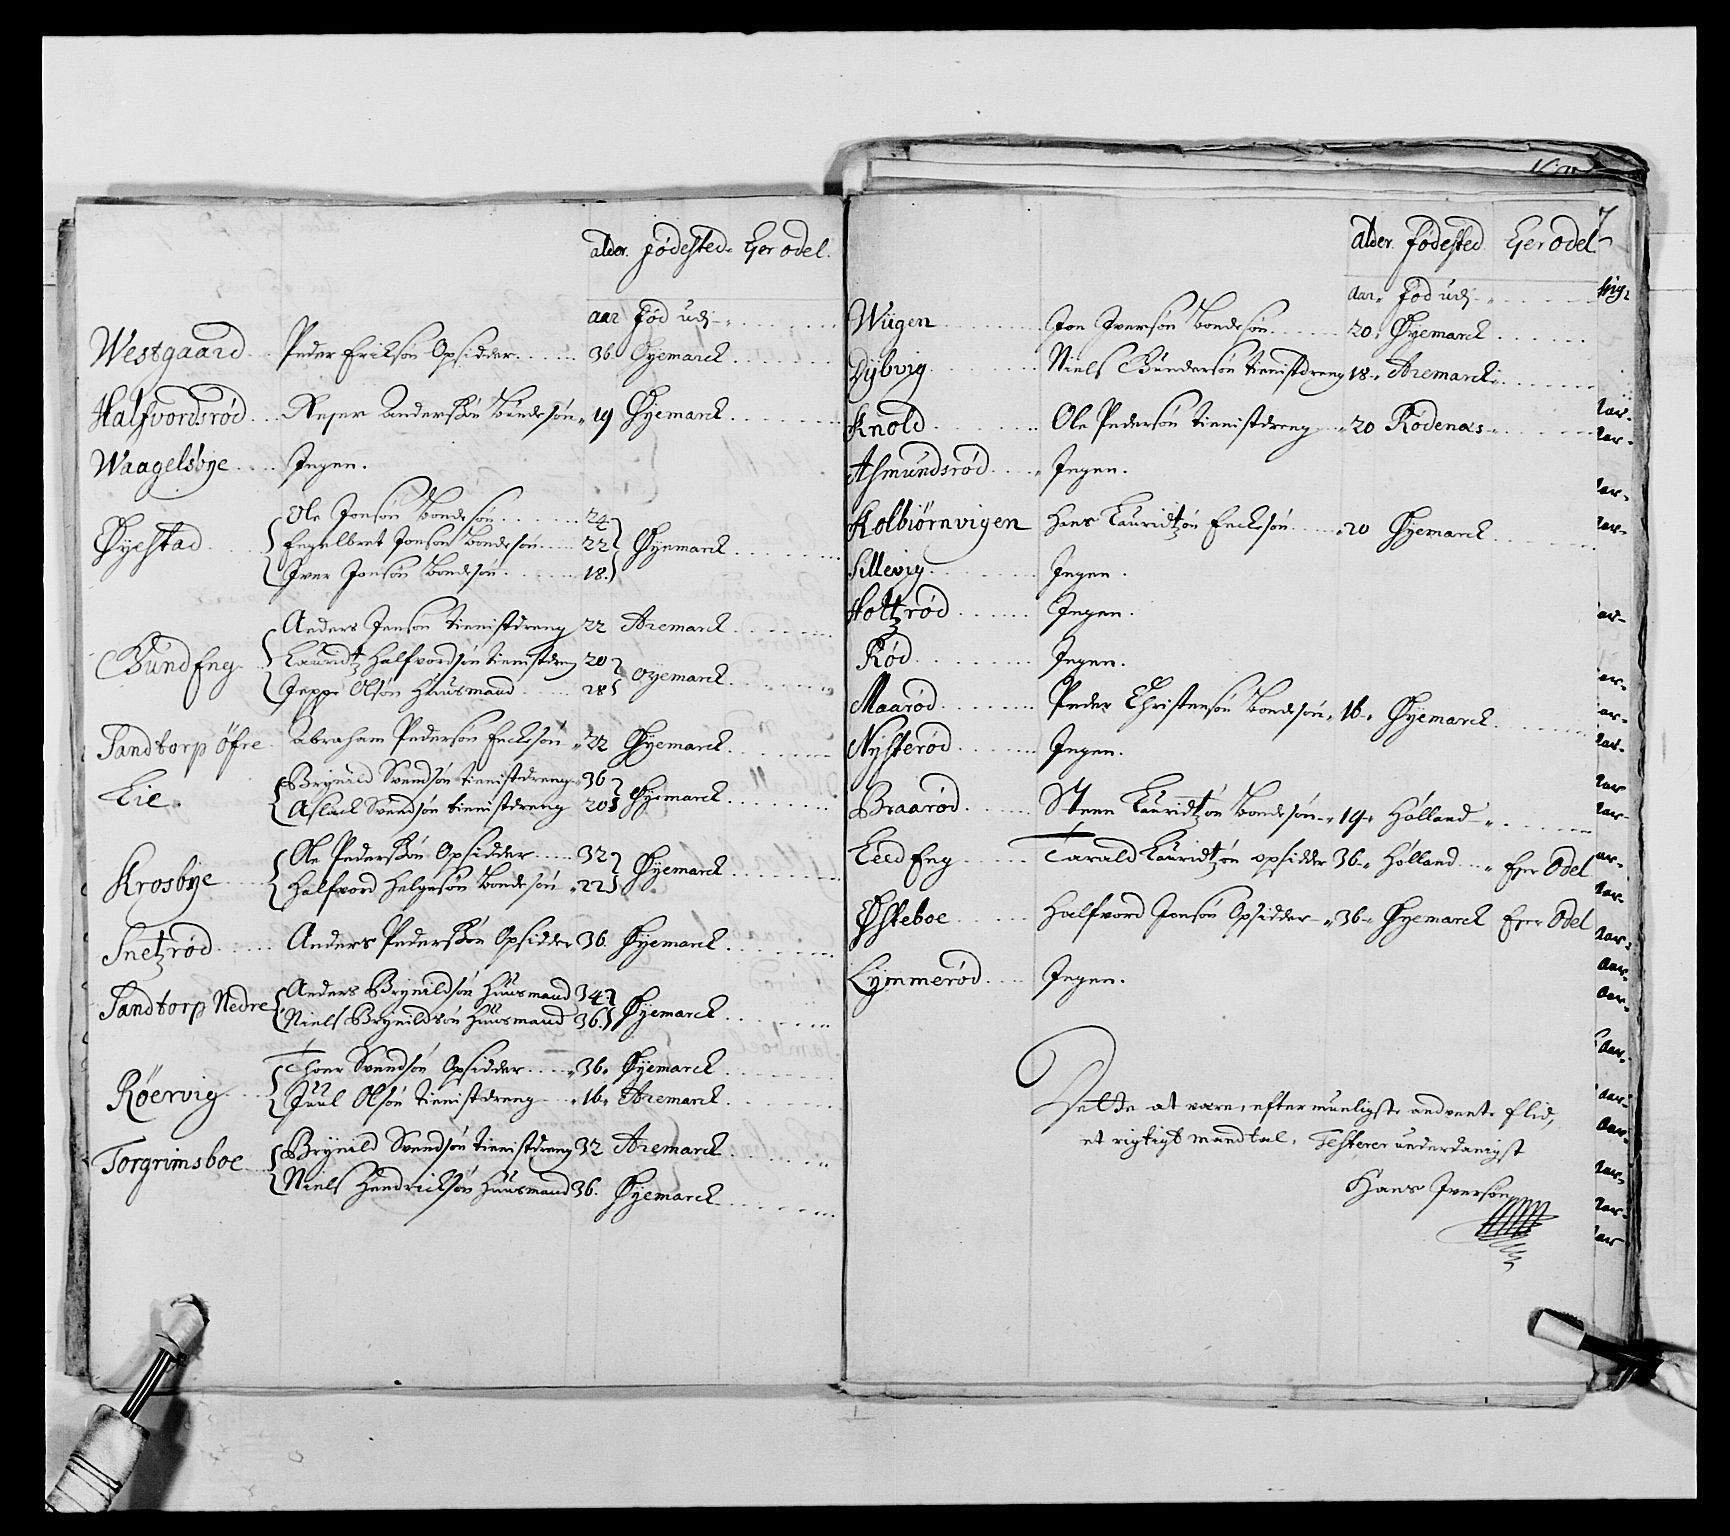 alder. Födested. Ejer odel.
aar Föd udj
Westgaard Peder Erikſön Opſidder 36. Öyemarck
Halfvordsröd Anderßön Bondesön 19 Öyemarck
Waagelsbye Ingen.
Öyestad Ole Jonſön Bondesön 24
Engelbret Jonſön Bondesön 22 Öyemarck
Iver Jonſön Bondesön 18.
Bund Eng Anders Jenſön tienistdreng 22 Aremarck
Lauridtz Halfvordsön tienistdreng 20
Jeppe Olſön Huusmand 28 Oyemarck
Sandtorp Öfre Abraham Pederſön Enckesön 22 Öyemarck
Lie. Brynild Svendſön tienistdreng 36
Aslack Svendſön tienistdreng 20 Öyemarck
Krosbye Ole Pederßön Opsidder 32
Halfvord Helgeſön Bondesön 22 Öyemarck
Snetzröd Anders Pederßön Opsidder 36. Öyemarck
Sandtorp Nedre Anders Brynildſön Huusmand 34
Niels Brynildsön Huusmand 36. Öyemarck
Röervig Thoer Svendſön Opsidder 36. Öyemarck
Juul Olſön tienistdreng 16. Aremarck
Torgrimsboe Brynild Svendſön tienistdreng 32 Aremarck
Niels Hendrickſön Huusmand 36. Öyemarck
7
alder. Födested. Ejer odel
aar. Föd udj
Wiigen Jon Iverſön Bondesön 20. Öyemarck
Dybvig Niels Gunderſön tienistdreng 18. Aremarck
Knold Ole Pederſön tienistdreng 20 Rödenæs
Asmundsröd Ingen.
Kolbiörnvigen Hans Lauridtzön Enckesön 20 Öyemarck
Sillevig Ingen.
Holtzröd Ingen.
Röd Ingen.
Maaröd Peder Christenſön Bondesön 16. Öyemarck
Nysteröd Ingen.
Braaröd Steen Lauridtzön Bondesön 19. Hölland
Leed Eng Tarald Lauridtzön opsidder 36. Hölland Ejer Odel
Östeboe Halfvord Jonſön Opsidder 36. Öyemarck Ejer Odel
Lymmeröd Ingen.
Dette at være, efter mueligste anvente flid,
et rigtigt Mandtal, Testerer underdanigst
Hans Iverſön